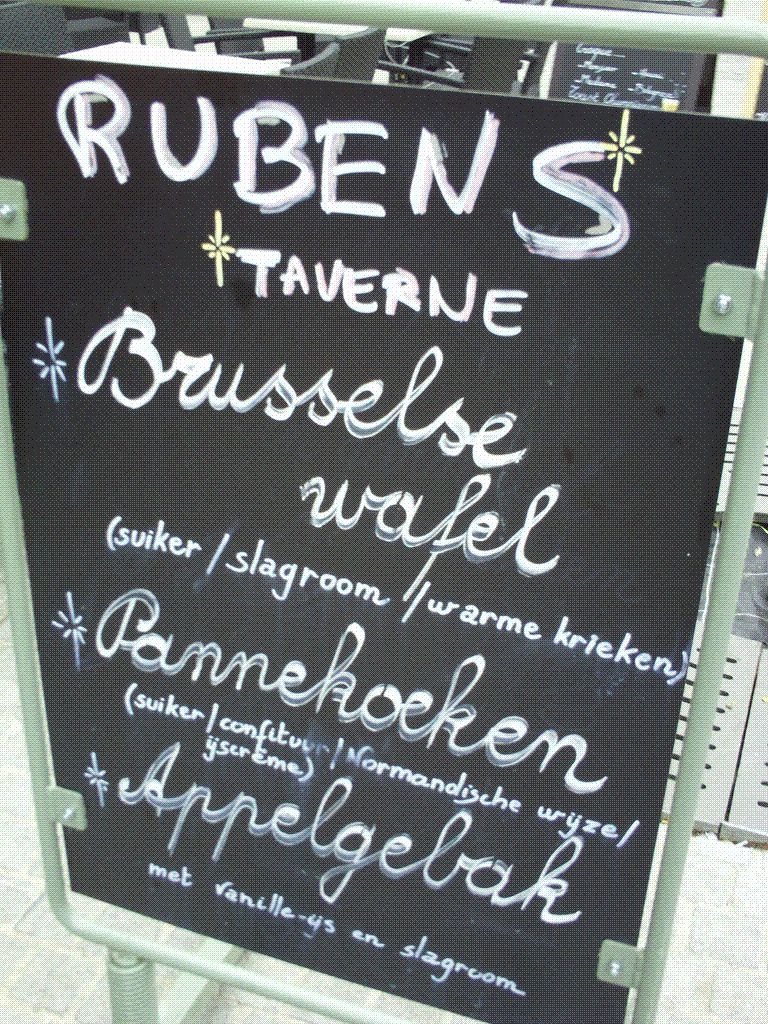 RUBENS
TAVERNE
Brusselse
wafel
(suiker/slagroom/warme krieken)
Pannekoeken
(suiker/confituur/Normandische wijze/
ijscrème)
Appelgebak
met vanille-ijs en slagroom